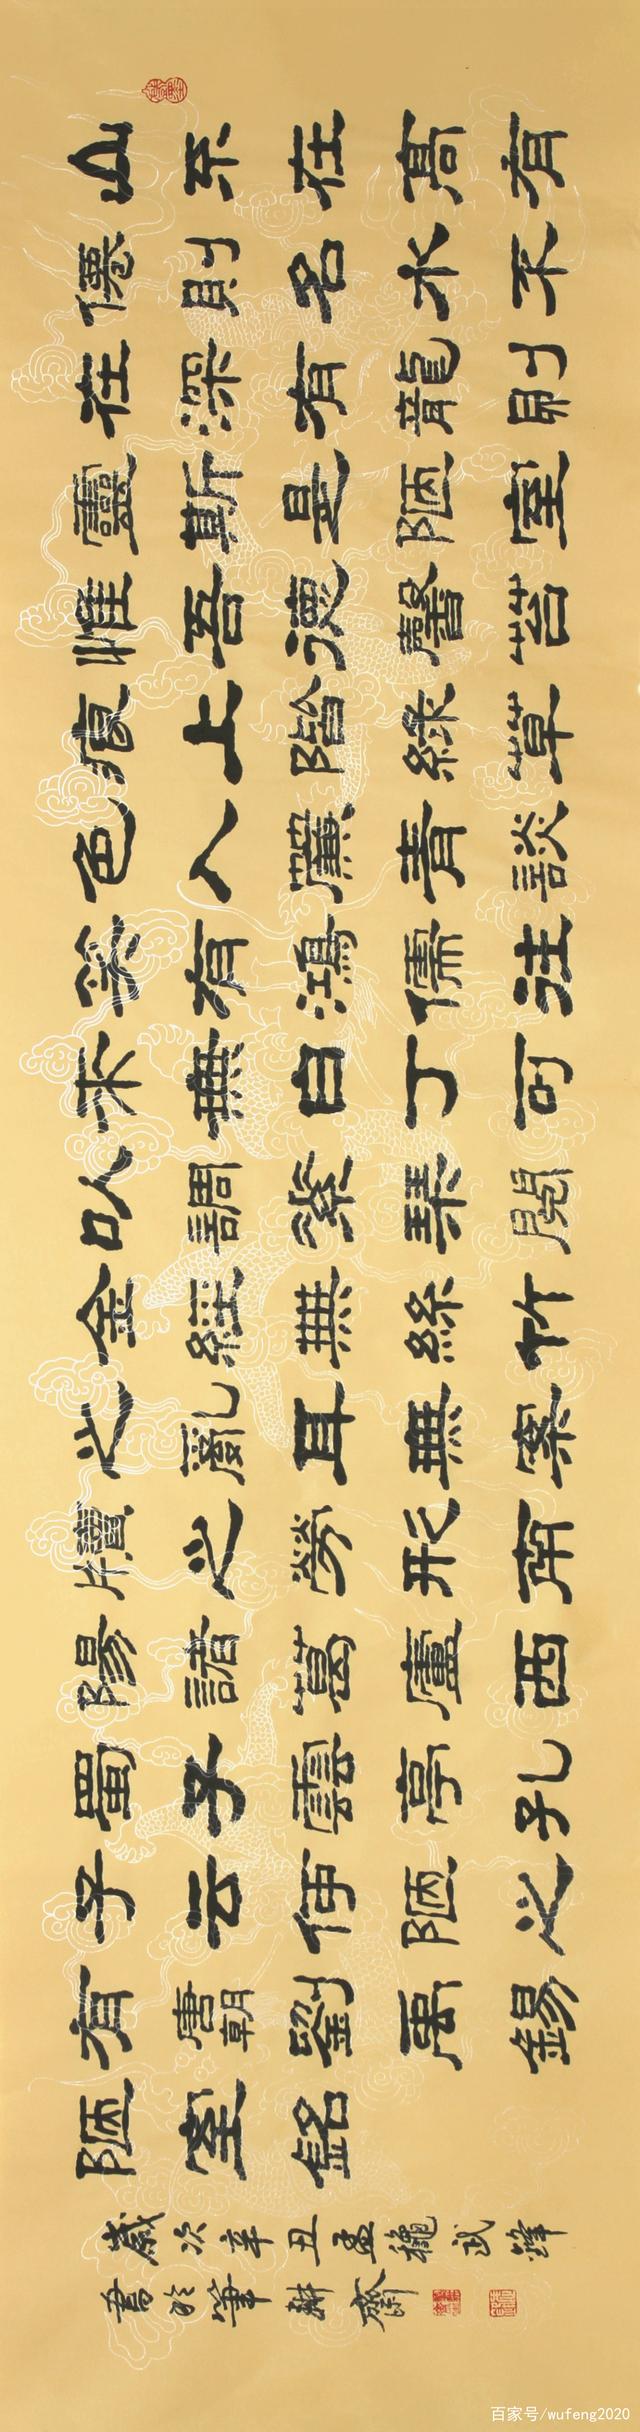 山不在高有
僊則名水不
在深有龍則
靈斯是陋室
惟吾德馨苔
痕上階綠草
色入簾青談
笑有鴻儒往
來無白丁可
以調素琴閱
金經無絲竹
之亂耳無案
牘之勞形南
陽諸葛廬西
蜀子雲亭孔
子云何陋之
有唐朝劉禹錫
陋室銘
歲次辛丑孟龝武鋒
書於筆耕齋
百家号/wufeng2020